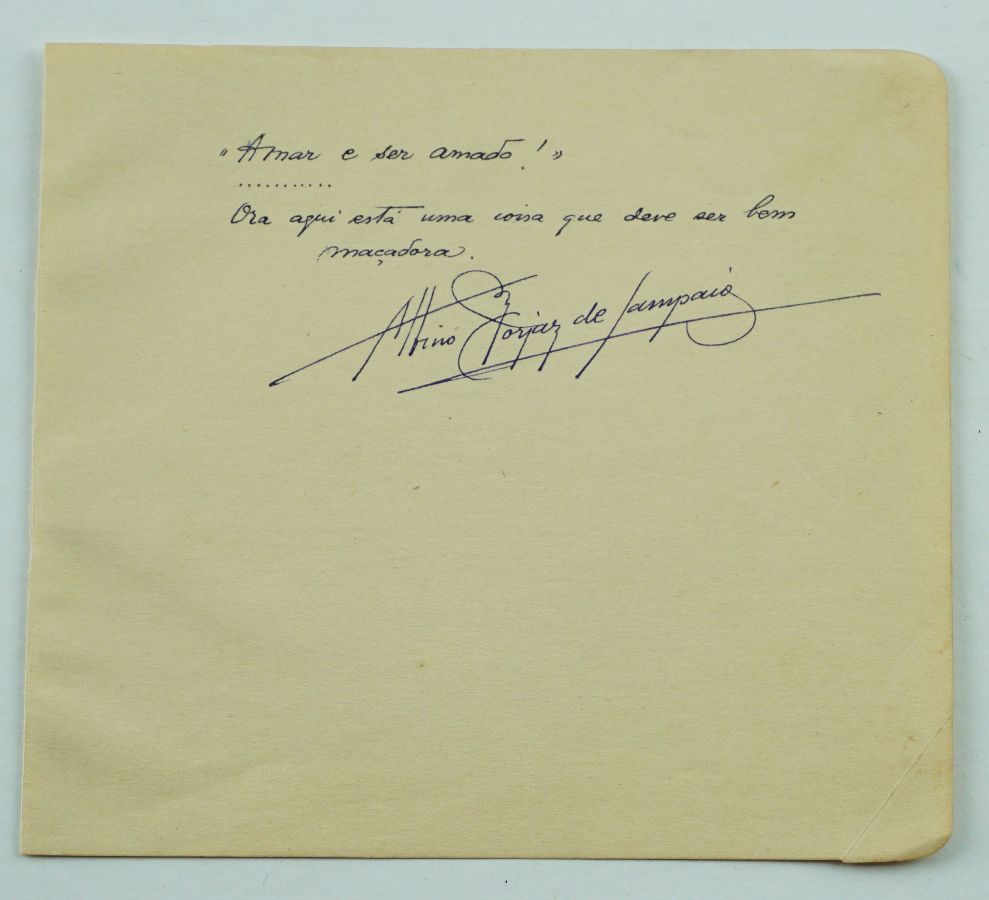 "Amar e ser amado!"
...........
Ora aqui está uma coisa que deve ser bem
maçadora.
Albino Forjaz de Sampaio